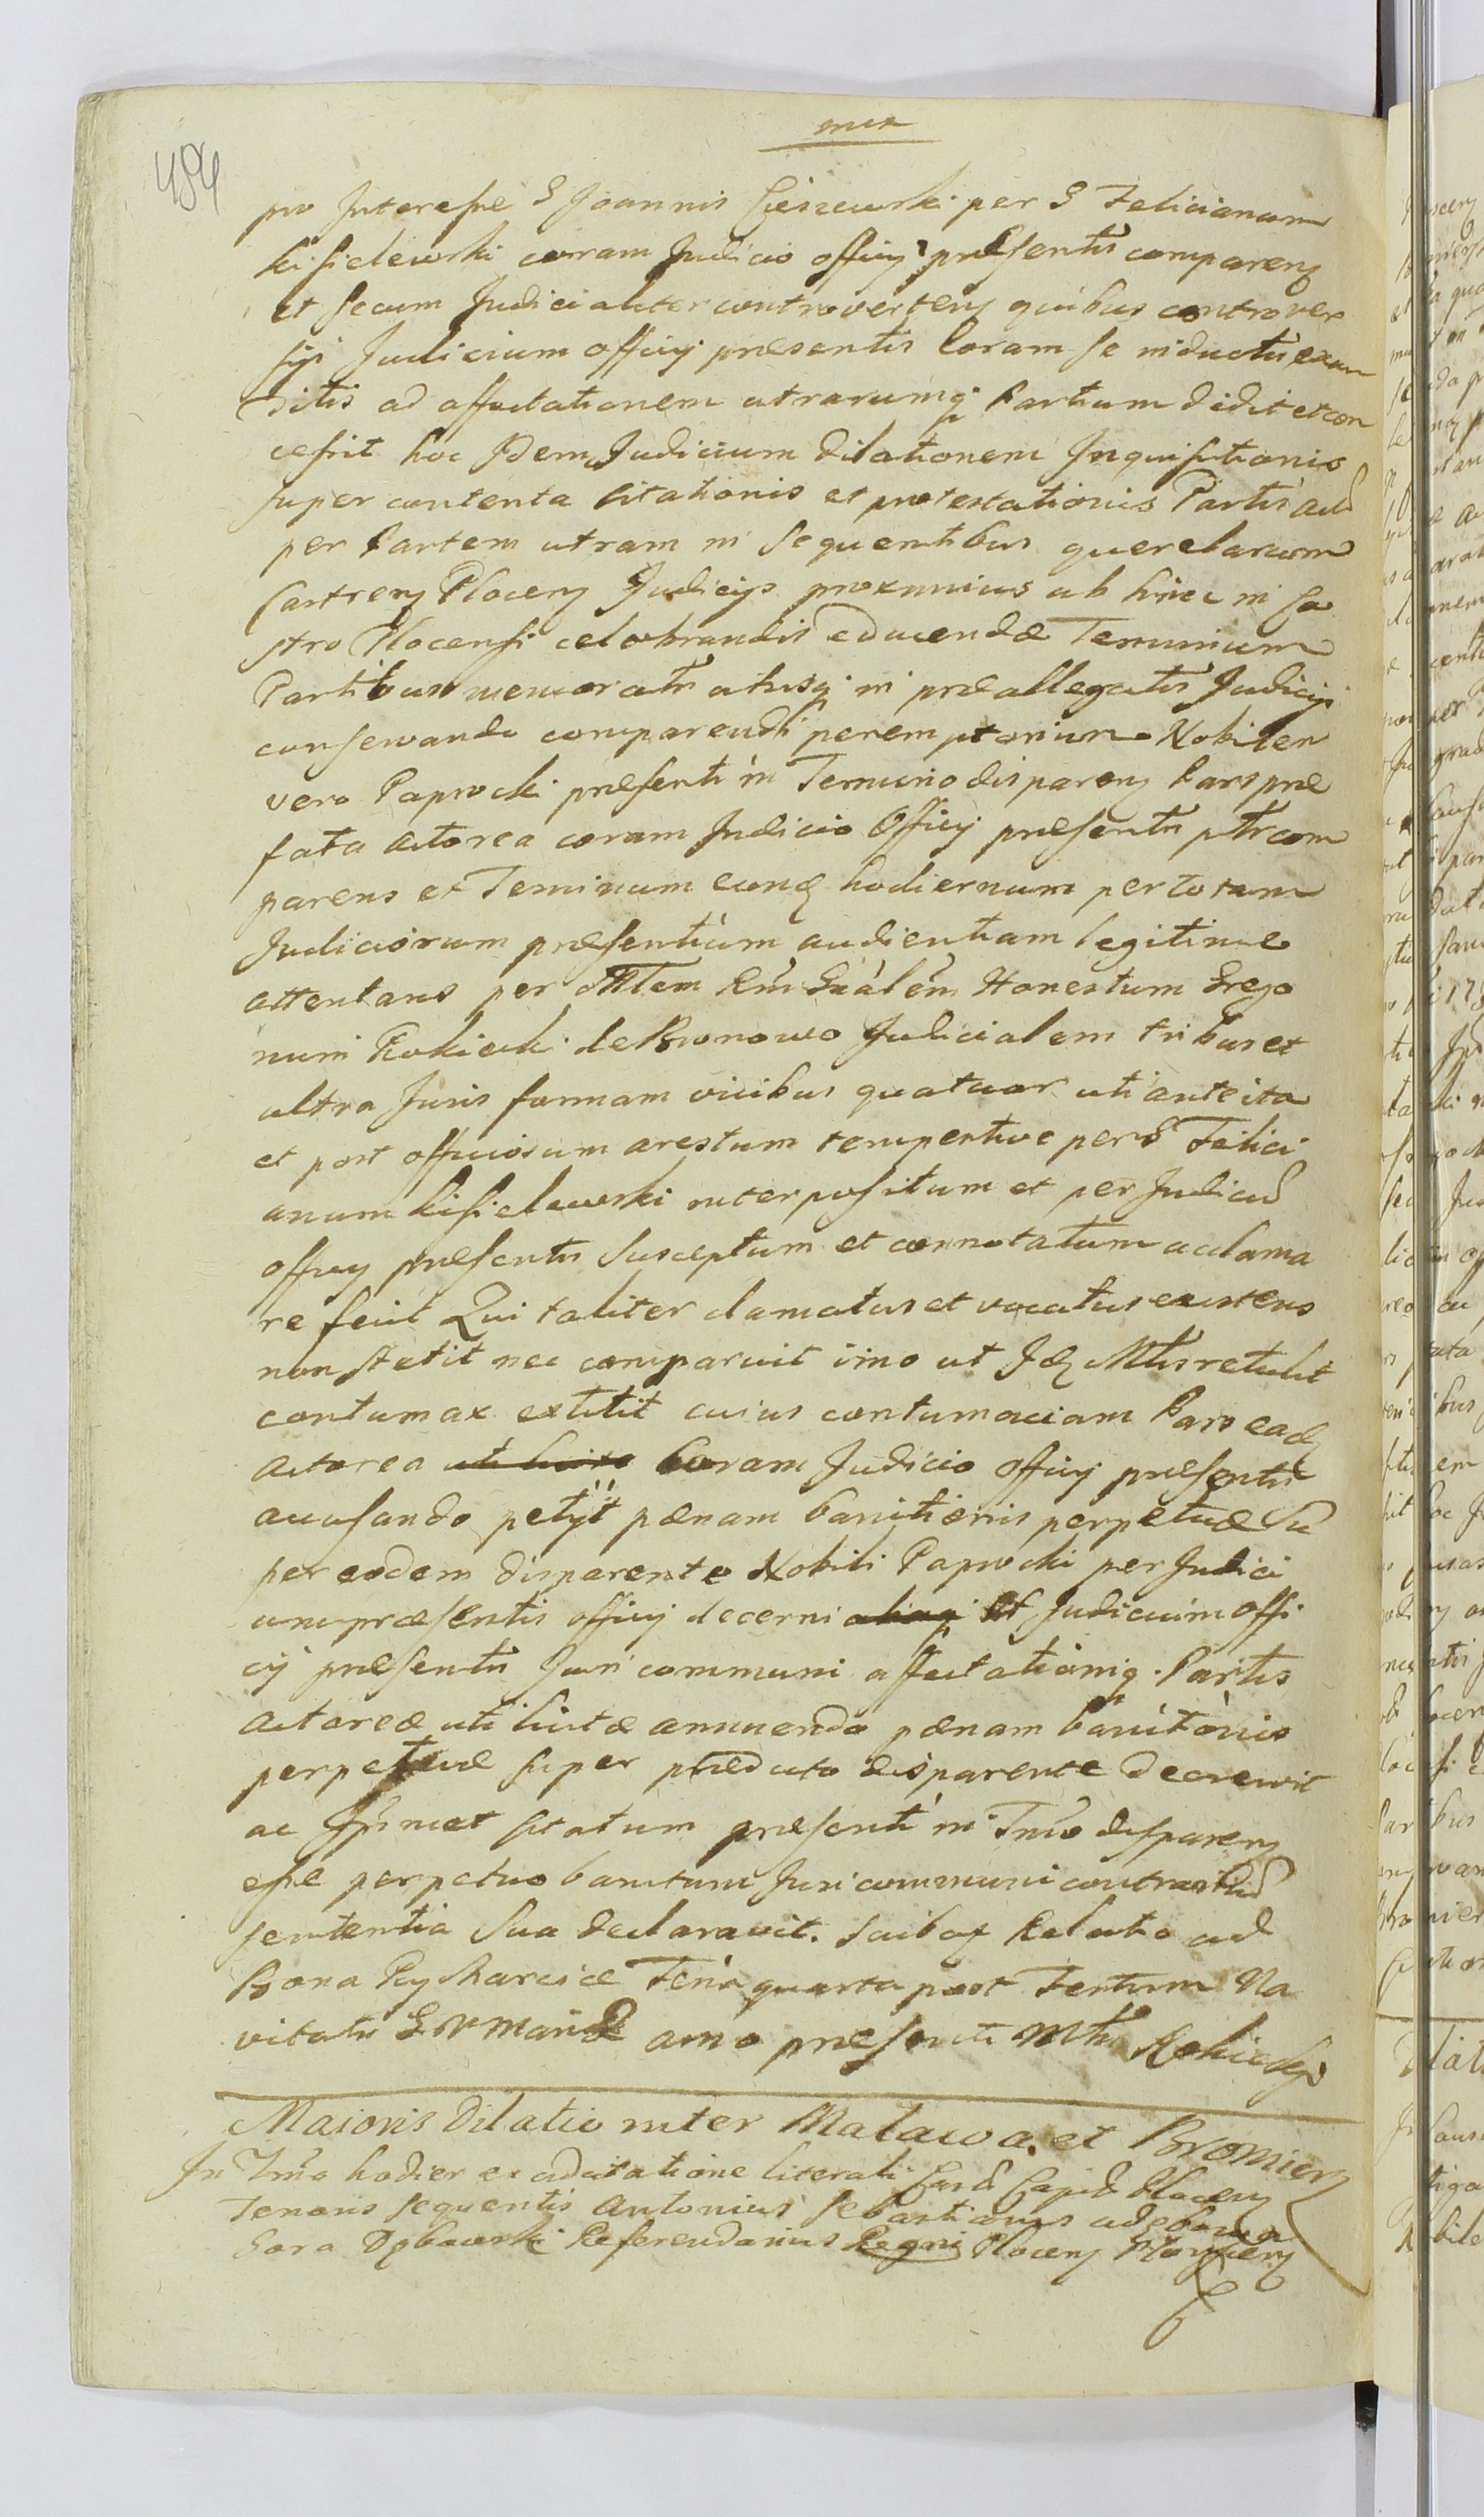 mer
484
pro Interesse G Joannis Cieszewski per G Felicianum
Kisielewski coram Judicio officij præsentis comparenz
et secum Judicialiter controvertenz quibus controver
sijs Judicium officij præsentis Coram se inductis exau
ditis ad affectationem utrarumq Partium dedit et con
cessit hoc Idem Judicium dilationem Inquisitionis
super contenta Citationis et protestationis Partis Act
per Partem utram in sequentibus querelarum
Castrenz Plocenz Judicijs proxmius ab hinc in Ca
stro Plocensi celebrandis educendæ Terminum
Partibus memoratis utrisq in præallegatis Judicijs
conservando comparendi peremptorium Nobilem
vero Paprocki præsenti in Termino disparenz Pars præ
fata Actorea coram Judicio Officij præsentis ptr com
parens et Terminum eunđ hodiernum per totam
Judiciorum præsentium audientiam legitime
attentans per Mtlem Rm Gnalem Honestum Grego
rium Rokicki de Bronowo Judicialem tribus et
ultra Juris formam vicibus quatuor uti ante ita
et post officiosum arestum tempestive per G Felici
anum Kisielewski interpositum et per Judiciu
officij præsentis susceptum et connotatum acclama
re fecit Qui taliter clamatus et vocatus existens
non stetit nec comparuit imo ut Idz Mtlis retulit
contumax extitit cuius contumaciam Pars eadz
Actorea coram Judicio officij præsentis
accusando petijt pænam banitionis perpetuæ Su
per eodem disparente Nobili Paprocki per Judici
um præsentis officij decerni Et Judicium offi
cij præsentis Juri communi affectationiq Partis
Actoreæ uti iustæ annuendo pænam banitionis
perpetuæ super prædicto disparente decrevit
ac Ipsmet citatum præsenti in Tmo disparenz
esse perpetuo banitum Juri communi contrarium
sententia Sua declaravit. Relatio ad
Bona Rycharcice Feria quarta post Festum Na
vitatis BVMariæ anno præsenti Mtlis Rokicki
Maioris Dilatio inter Malawa et Bromierz
In Tmo hodier ex literali Plocenz
Tenoris sequentis Antonius Sebastianus a
Gora Dębowski Referendarius Regni Plocenz